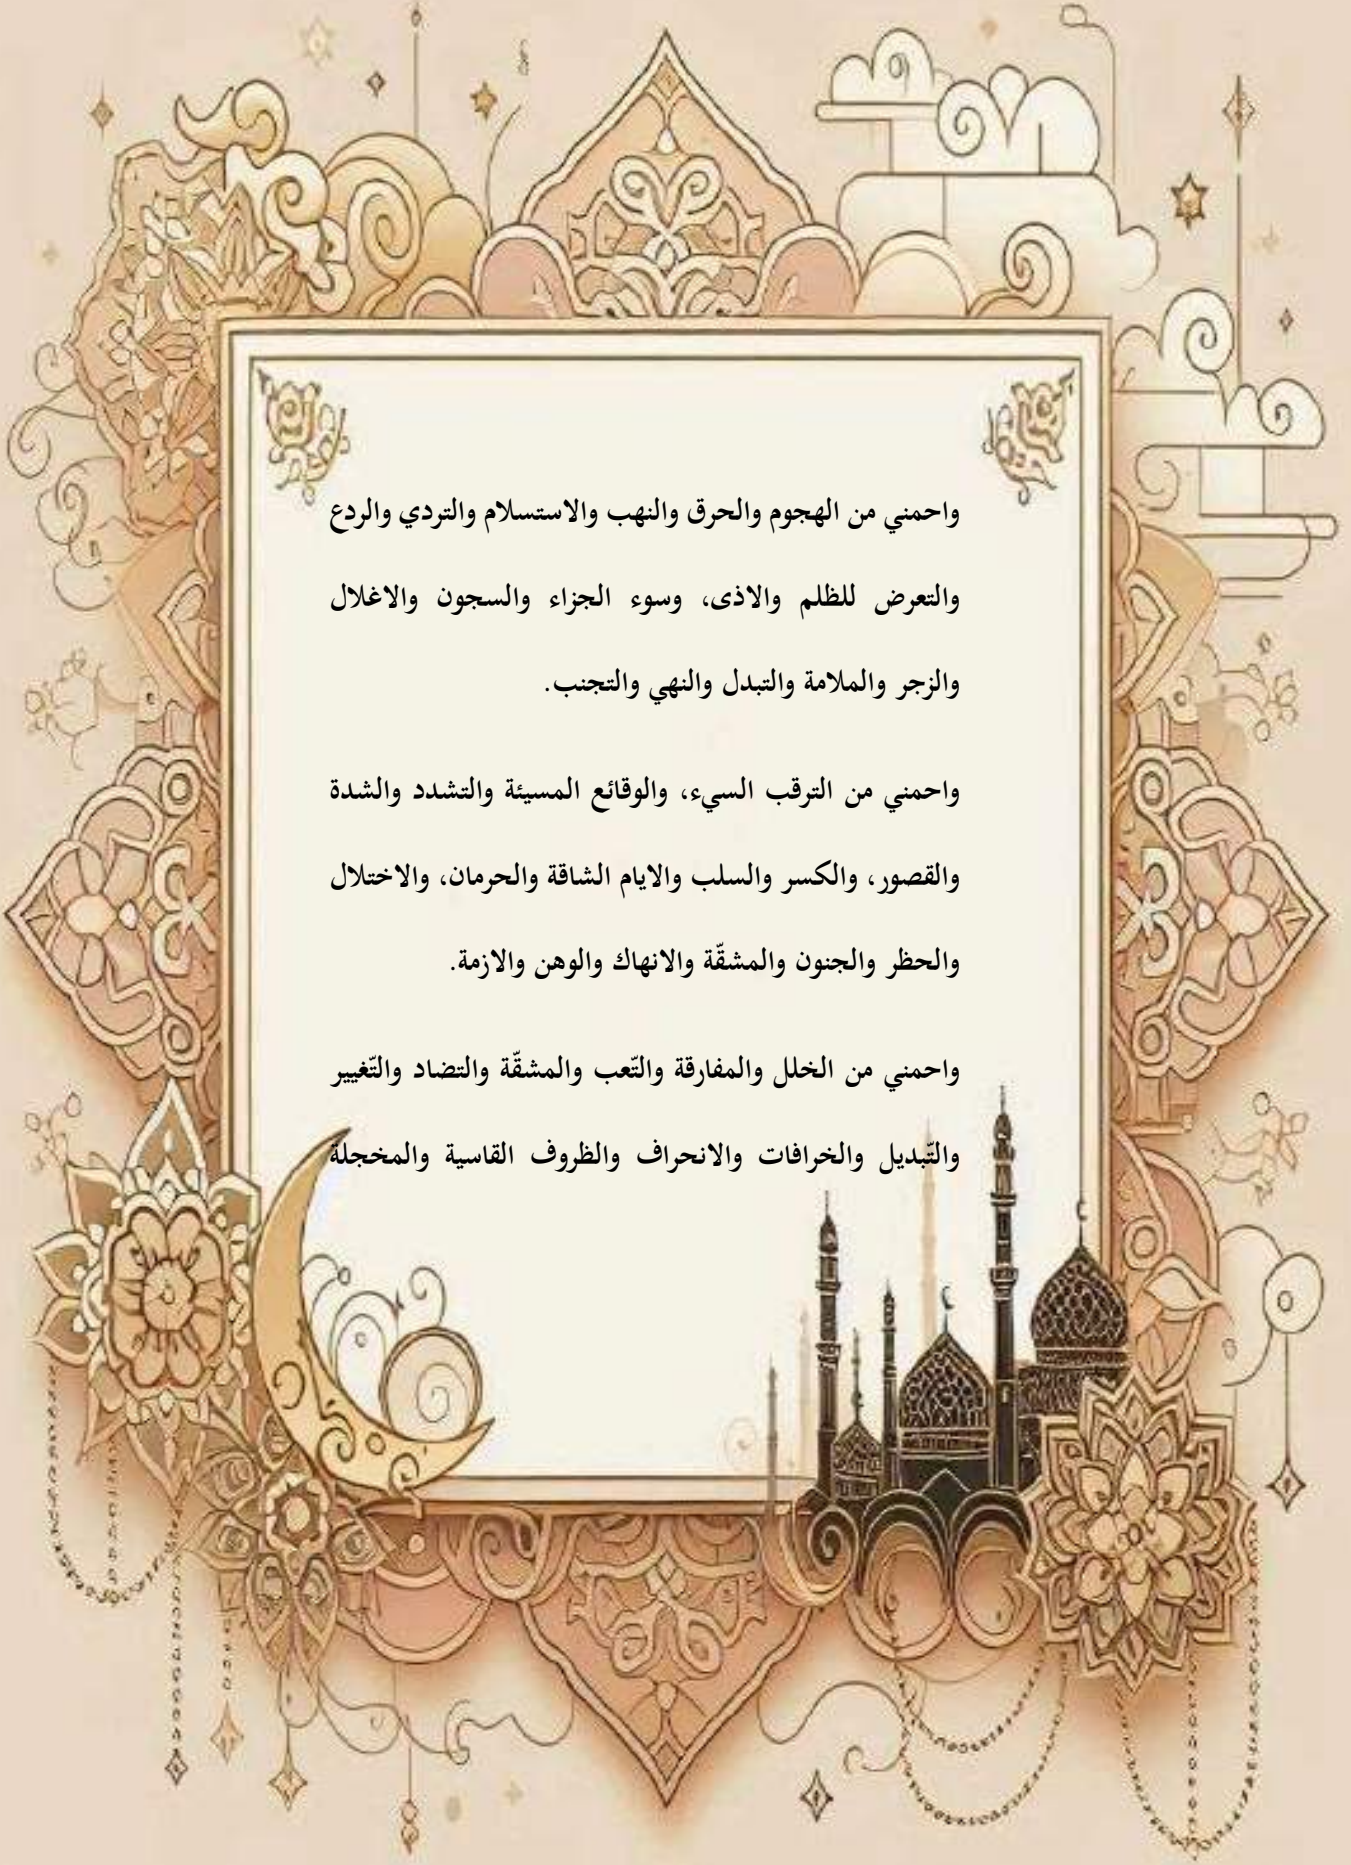 واحمني من الهجوم والحرق والنهب والاستسلام والتردي والردع
والتعرض للظلم والاذى، وسوء الجزاء والسجون والاغلال
والزجر والملامة والتبدل والنهي والتجنب.
واحمني من الترقب السيء، والوقائع المسيئة والتشدد والشدة
والقصور، والكسر والسلب والايام الشاقة والحرمان، والاختلال
والحظر والجنون والمشقّة والانهاك والوهن والازمة.
واحمني من الخلل والمفارقة والتّعب والمشقّة والتضاد والتّغيير
والتّبديل والخرافات والانحراف والظروف القاسية والمخجلة